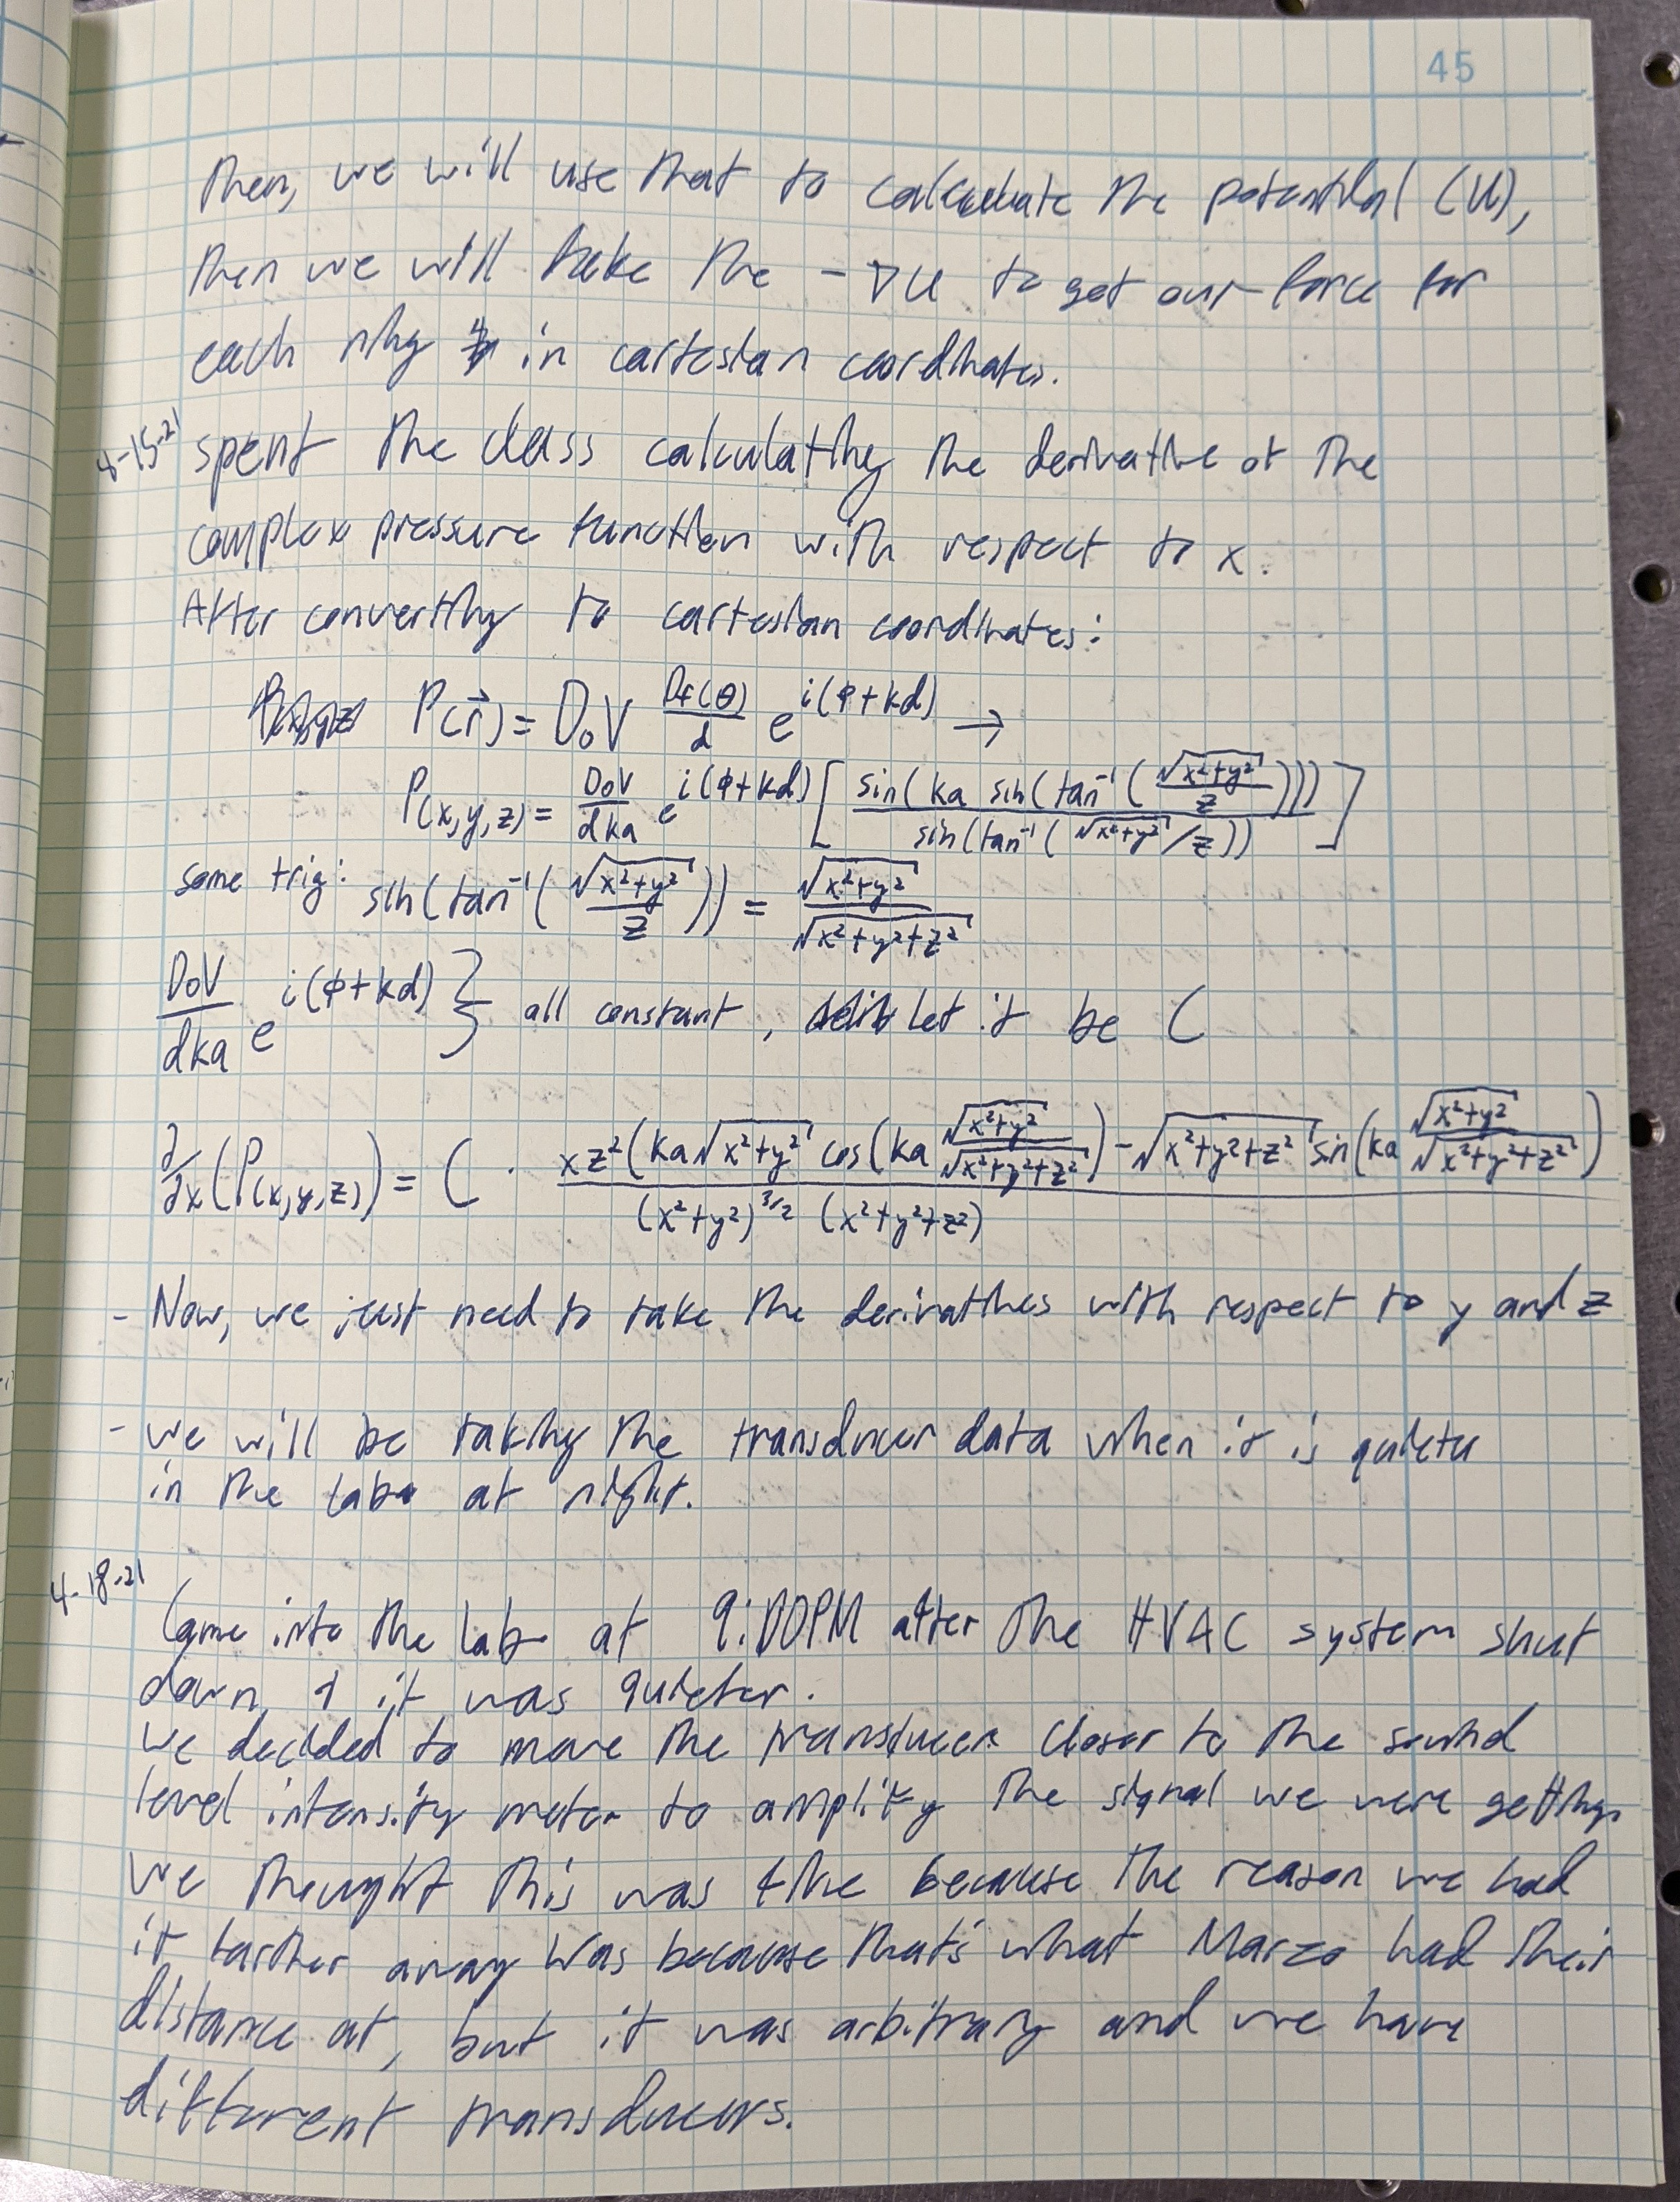 45
Then, we will use that to calculate the potential (U),
then we will take the -∇U to get our force for
each ring in cartesian coordinates.
4-15-21 spent the class calculating the derivative of the
complex pressure function with respect to x.
After converting to cartesian coordinates:
P(r⃗) = D₀V Df(θ)/d e^i(φ+kd) →
P(x,y,z) = D₀V/dka e^i(φ+kd) [ sin(ka sin(tan⁻¹(√(x²+y²)/z))) / sin(tan⁻¹(√(x²+y²)/z)) ]
some trig: sin(tan⁻¹(√(x²+y²)/z)) = √(x²+y²)/√(x²+y²+z²)
D₀V/dka e^i(φ+kd) } all constant, let it be C
∂/∂x (P(x,y,z)) = C · xz²(ka√(x²+y²) cos(ka √(x²+y²)/√(x²+y²+z²)) - √(x²+y²+z²) sin(ka √(x²+y²)/√(x²+y²+z²)) / (x²+y²)^3/2 (x²+y²+z²)
- Now, we just need to take the derivatives with respect to y and z
- we will be taking the transducer data when it is quieter
in the lab at night.
4-18-21
Came into the lab at 9:00PM after the HVAC system shut
down, & it was quieter.
We decided to move the transducer closer to the sound
level intensity meter to amplify the signal we were getting.
We thought this was fine because the reason we had
it farther away was because that's what Marzo had their
distance at, but it was arbitrary and we have
different transducers.